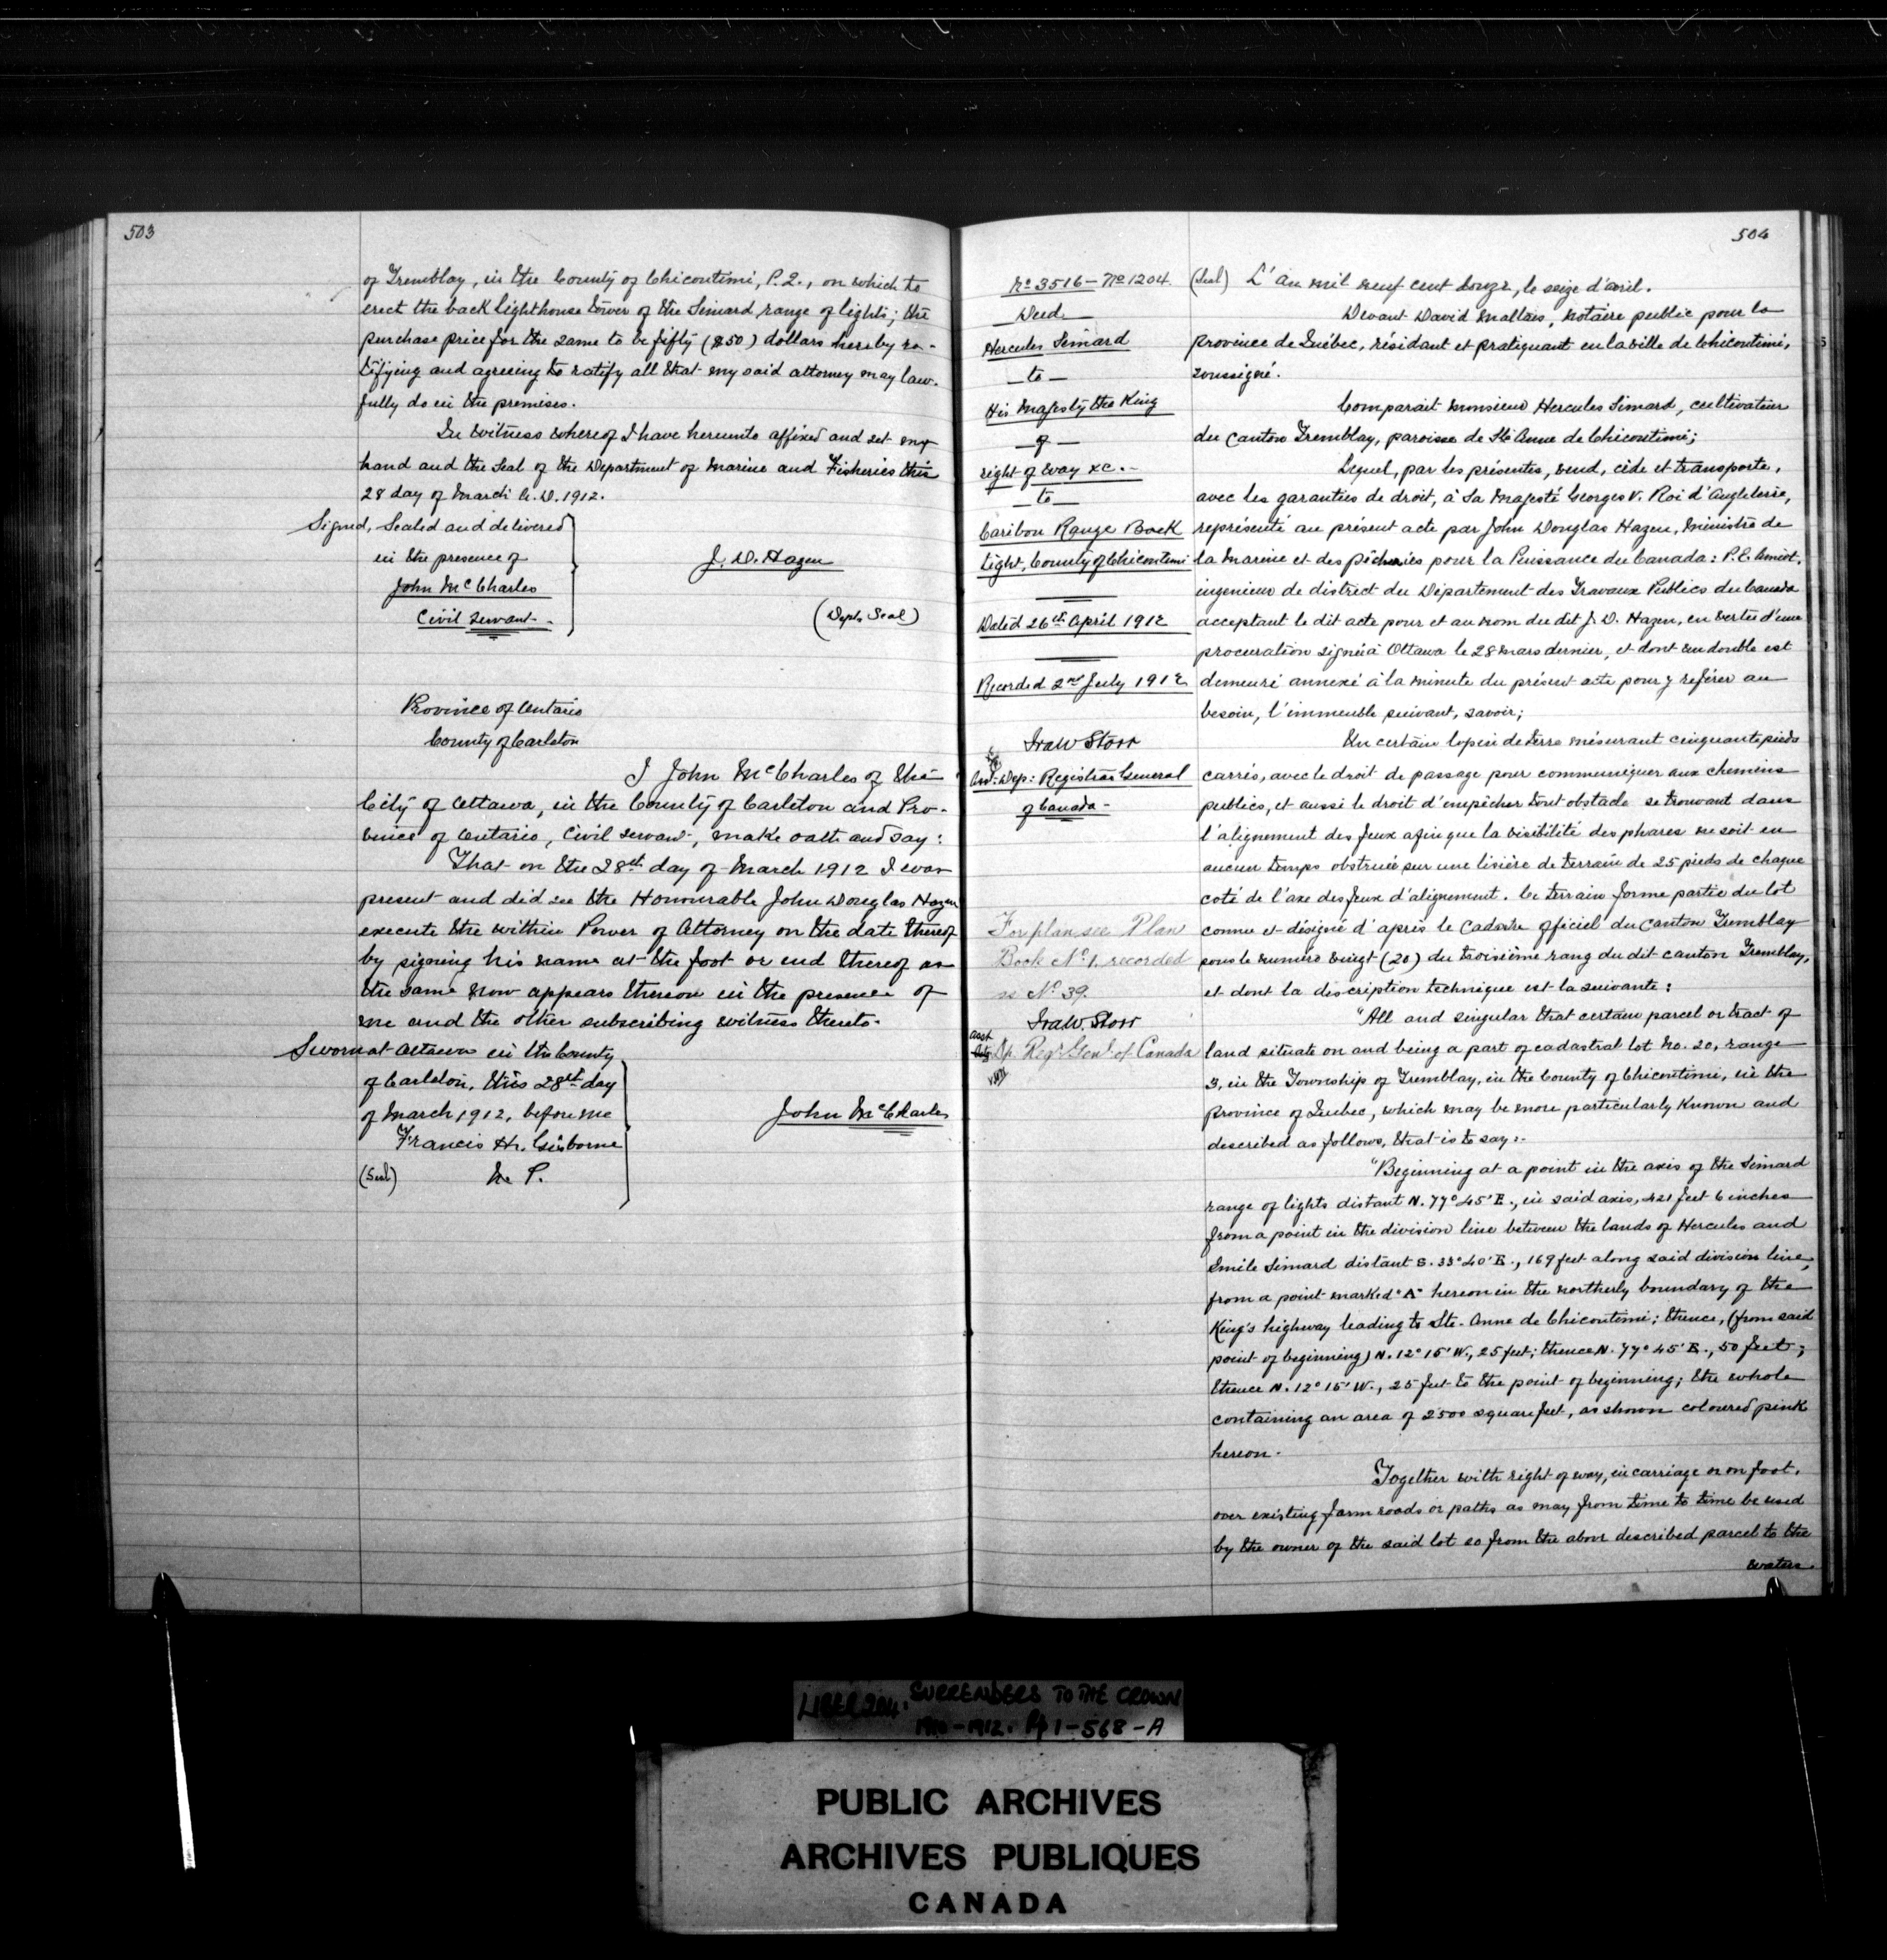 503
of Tremblay, in the County of Chicoutimi, P.Q., on which to
erect the back lighthouse tower of the Simard range of lights; the
purchase price for the same to be fifty ($50) dollars hereby ra-
tifying and agreeing to ratify all that my said attorney may law-
fully do in the premises.
In witness whereof I have hereunto affixed and set my
hand and the Seal of the Department of Marine and Fisheries this
28 day of March A.D. 1912.
Signed, Sealed and delivered
in the presence of
John McCharles
Civil Servant.
J. D. Hazen
(Dept. Seal)
Province of Ontario
County of Carleton
I John McCharles of the
City of Ottawa, in the County of Carleton and Pro-
vince of Ontario, Civil Servant, make oath and say:
That on the 28th day of March 1912 I was
present and did see the Honourable John Douglas Hazen
execute the within Power of Attorney on the date thereof
by signing his name at the foot or end thereof as
the same now appears thereon in the presence of
me and the other subscribing witness thereto.
Sworn at Ottawa in the County
of Carleton, this 28th day
of March 1912, before me
Francis H. Gisborne
(Seal) N. P.
John McCharles
504
No 3516 - No 1204.
Deed
Hercules Simard
- to -
His Majesty the King
- of -
right of way &c. -
- to -
Caribou Range Back
Light, County of Chicoutimi
Dated 26th April 1912
Recorded 2nd July 1912
Ira W Storr
Dep: Registrar General
of Canada -
For plan see Plan
Book No 1, recorded
as No 39.
Ira W. Storr
asst
Dp. Regr Genl of Canada
(Seal) L'An mil neuf cent douze, le seize d'avril.
Devant David Maltais, notaire public pour la
province de Québec, résidant et pratiquant en la ville de Chicoutimi,
soussigné.
Comparait Monsieur Hercules Simard, cultivateur
du Canton Tremblay, paroisse de Ste Anne de Chicoutimi;
Lequel, par les présentes, vend, cède et transporte,
avec les garanties de droit, à Sa Majesté Georges V. Roi d'Angleterre,
représenté au présent acte par John Douglas Hazen, Ministre de
la Marine et des pêcheries pour la Puissance du Canada: P.E. Amiot,
ingenieur de district du Département des Travaux Publics du Canada
acceptant le dit acte pour et au nom du dit J. D. Hazen, en vertu d'une
procuration signée à Ottawa le 28 mars dernier, et dont un double est
demeuré annexé à la minute du présent acte pour y reférer au
besoin, l'immeuble suivant, savoir;
Un certain lopin de terre mésurant cinquante pieds
carrés, avec le droit de passage pour communiquer aux chemins
publics, et aussi le droit d'empêcher tout obstacle se trouvant dans
l'alignement des feux afin que la visibilité des phares ne soit en
aucun temps obstruée sur une lisière de terrain de 25 pieds de chaque
coté de l'axe des feux d'alignement. Ce terrain forme partie du lot
connu et désigné d'après le Cadastre officiel du Canton Tremblay
sous le numéro vingt (20) du troisième rang du dit canton Tremblay,
et dont la discription technique est la suivante:
"All and singular that certain parcel or tract of
land situate on and being a part of cadastral lot No. 20, range
3, in the Township of Tremblay, in the County of Chicoutimi, in the
Province of Quebec, which may be more particularly known and
described as follows, that is to say:-
"Beginning at a point in the axis of the Simard
range of lights distant N. 77° 45' E., in said axis, 421 feet 6 inches
from a point in the division line between the lands of Hercules and
Emile Simard distant S. 33° 40' E., 169 feet along said division line,
from a point marked "A" hereon in the northerly boundary of the
King's highway leading to Ste. Anne de Chicoutimi; thence, (from said
point of beginning) N. 12° 15' W., 25 feet; thence N. 77° 45' E., 50 feet;
thence N. 12° 15' W., 25 feet to the point of beginning; the whole
containing an area of 2500 square feet, as shown coloured pink
hereon.
Together with right of way, in carriage or on foot,
over existing farm roads or paths as may from time to time be used
by the owner of the said lot 20 from the above described parcel to the
waters.
LIBER 204. SURRENDERS TO THE CROWN
1910-1912. Pp 1-568-A
PUBLIC ARCHIVES
ARCHIVES PUBLIQUES
CANADA